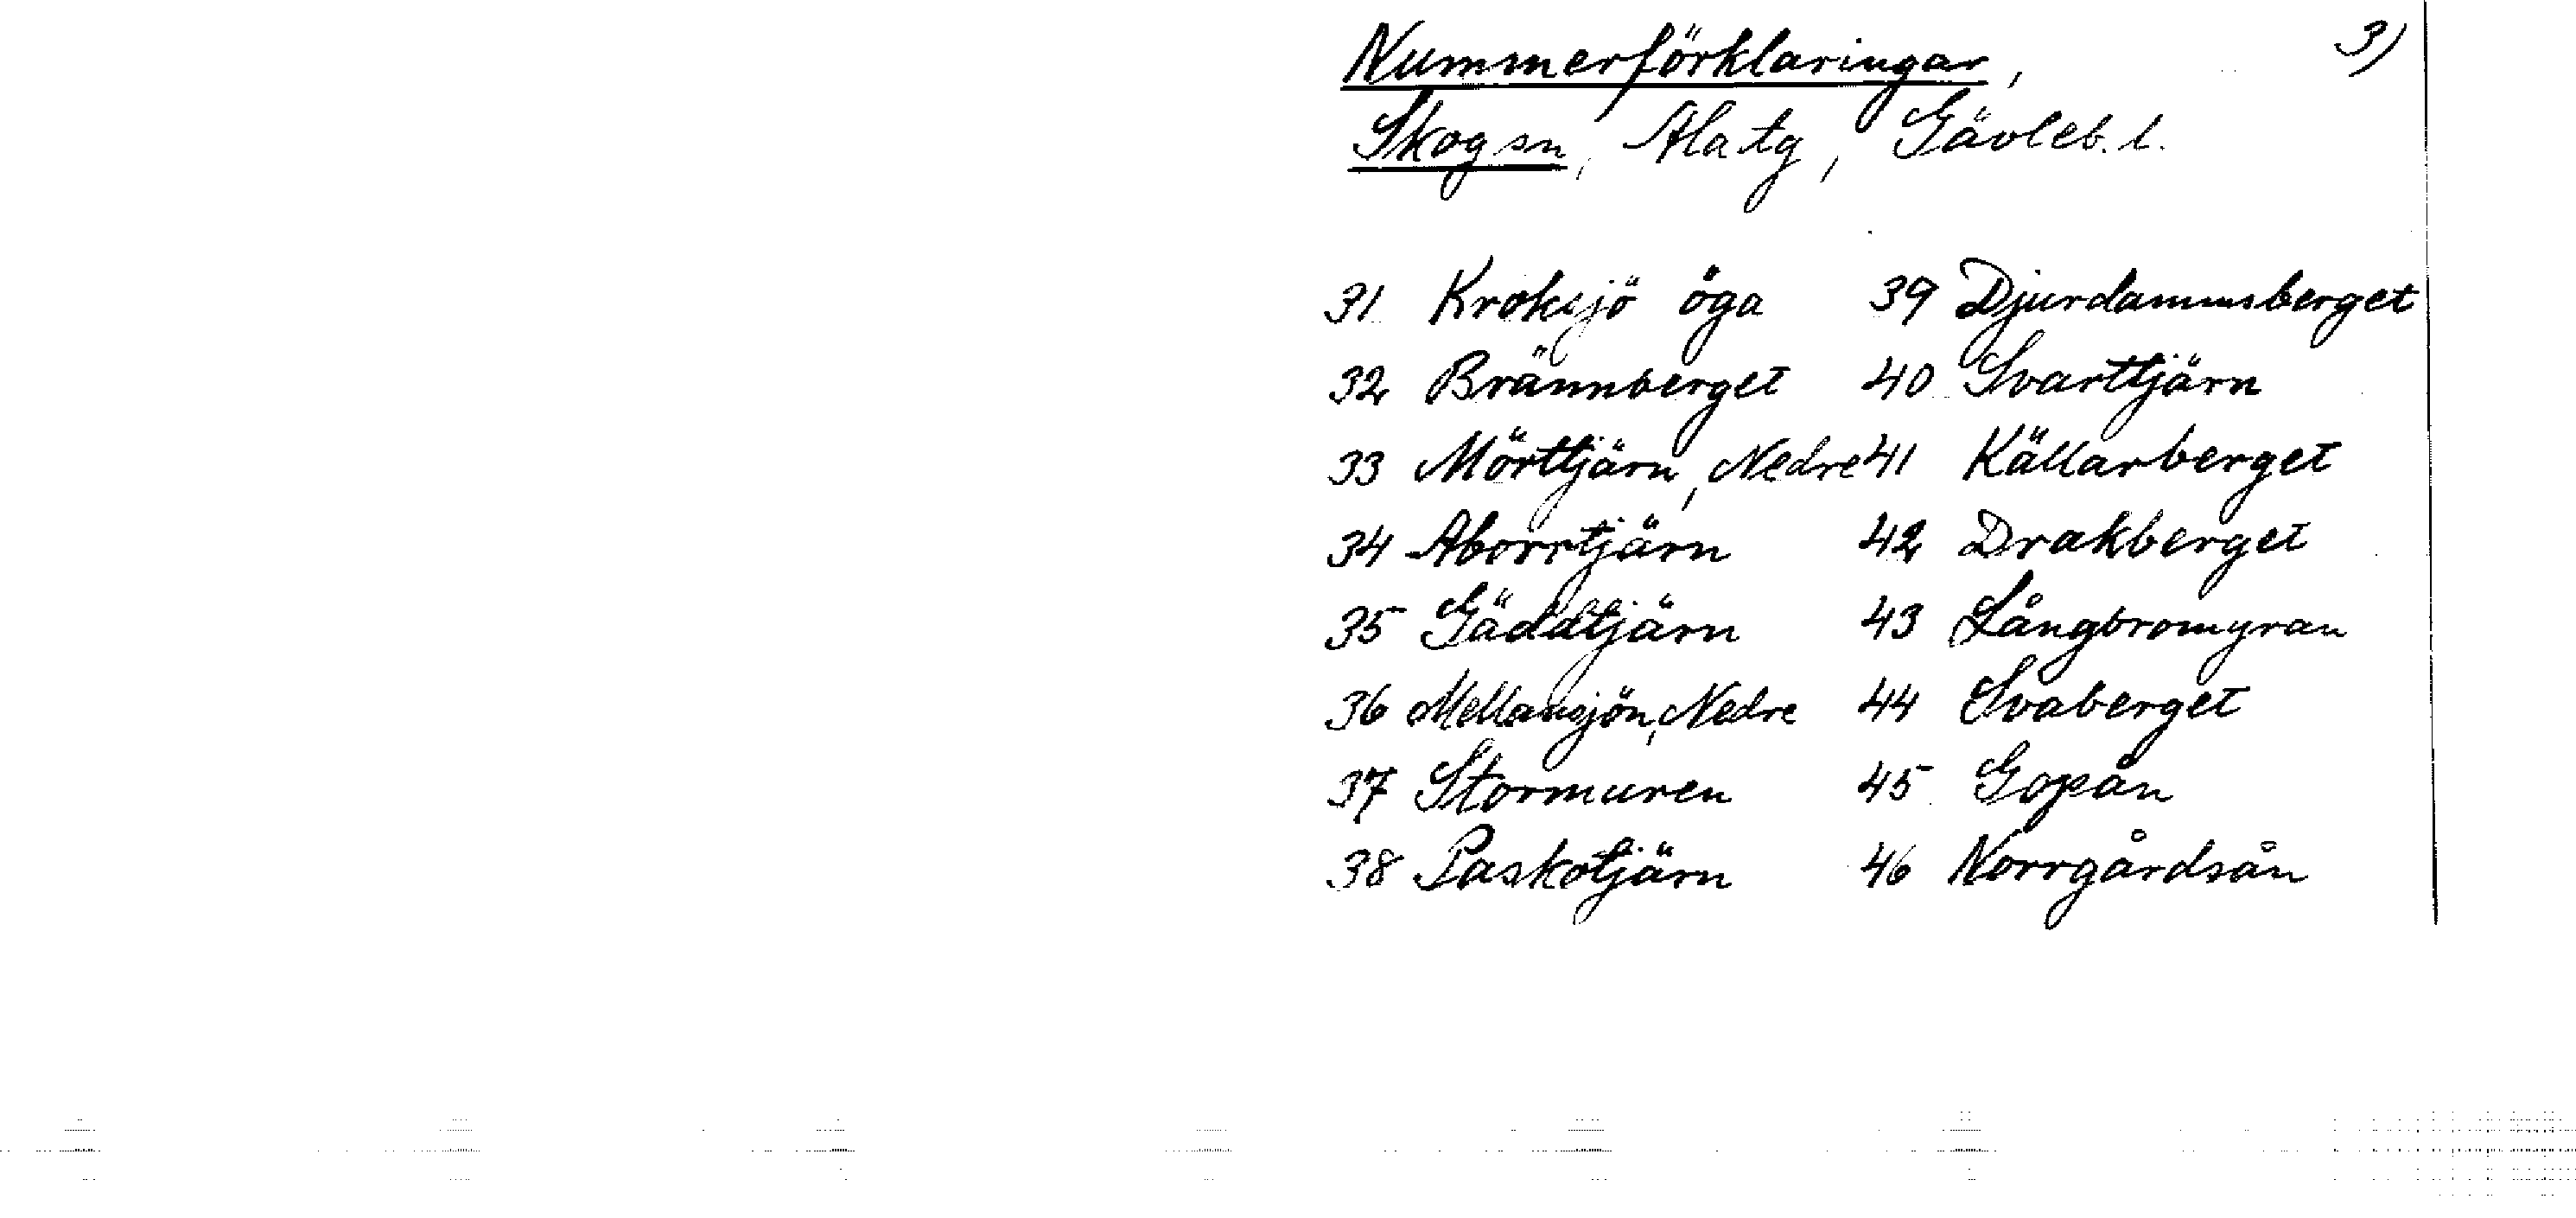 Nummerförklaringar, 3)
Skog sn, Ala tg, Gävleb. l.
31 Kroksjö öga 39 Djurdammsberget
32 Brännberget 40 Svarttjärn
33 Mörttjärn, Nedre 41 Källarberget
34 Aborrtjärn 42 Drakberget
35 Gäddtjärn 43 Långbromyran
36 Mellansjön, Nedre 44 Svaberget
37 Stormuren 45 Gopån
38 Paskotjärn 46 Norrgårdsån